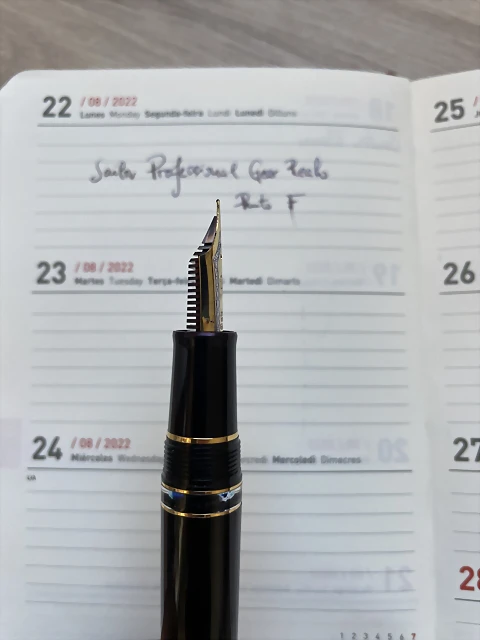 22 / 08 / 2022
Lunes Monday Segunda-feira Lundi Lunedì Dilluns
25
Sailor Professional Gear Realo
Punto F
23 / 08 / 2022
Martes Tuesday Terça-fei Mardi Martedì Dimarts
26
24 / 08 / 2022
Miércoles Wednesda credi Mercoledì Dimecres
27
28
1 2 3 4 5 6 7